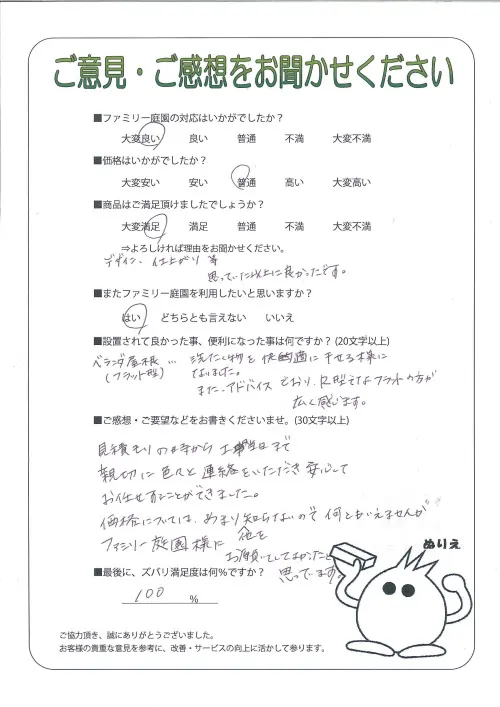 ご意見・ご感想をお聞かせください
■ファミリー庭園の対応はいかがでしたか？
大変良い 良い 普通 不満 大変不満
■価格はいかがでしたか？
大変安い 安い 普通 高い 大変高い
■商品はご満足頂けましたでしょうか？
大変満足 満足 普通 不満 大変不満
⇒よろしければ理由をお聞かせください。
デザイン、仕上がり等
思っていた以上に良かったです。
■またファミリー庭園を利用したいと思いますか？
はい どちらとも言えない いいえ
■設置されて良かった事、便利になった事は何ですか？(20文字以上)
ベランダ屋根… 洗たく物を快適に干せる様に
(フラット型) なりました。
また、アドバイスどおり、R型よりフラットの方が
広く感じます。
■ご感想・ご要望などをお書きくださいませ。(30文字以上)
見積もりの時から工事当日まで
親切に色々と連絡をいただき安心して
お任せすることができました。
価格については、あまり知らないので何ともいえませんが
ファミリー庭園様に
お願いしてよかったと
思っています。
■最後に、ズバリ満足度は何％ですか？
100 ％
ぬりえ
ご協力頂き、誠にありがとうございました。
お客様の貴重な意見を参考に、改善・サービスの向上に活かして参ります。